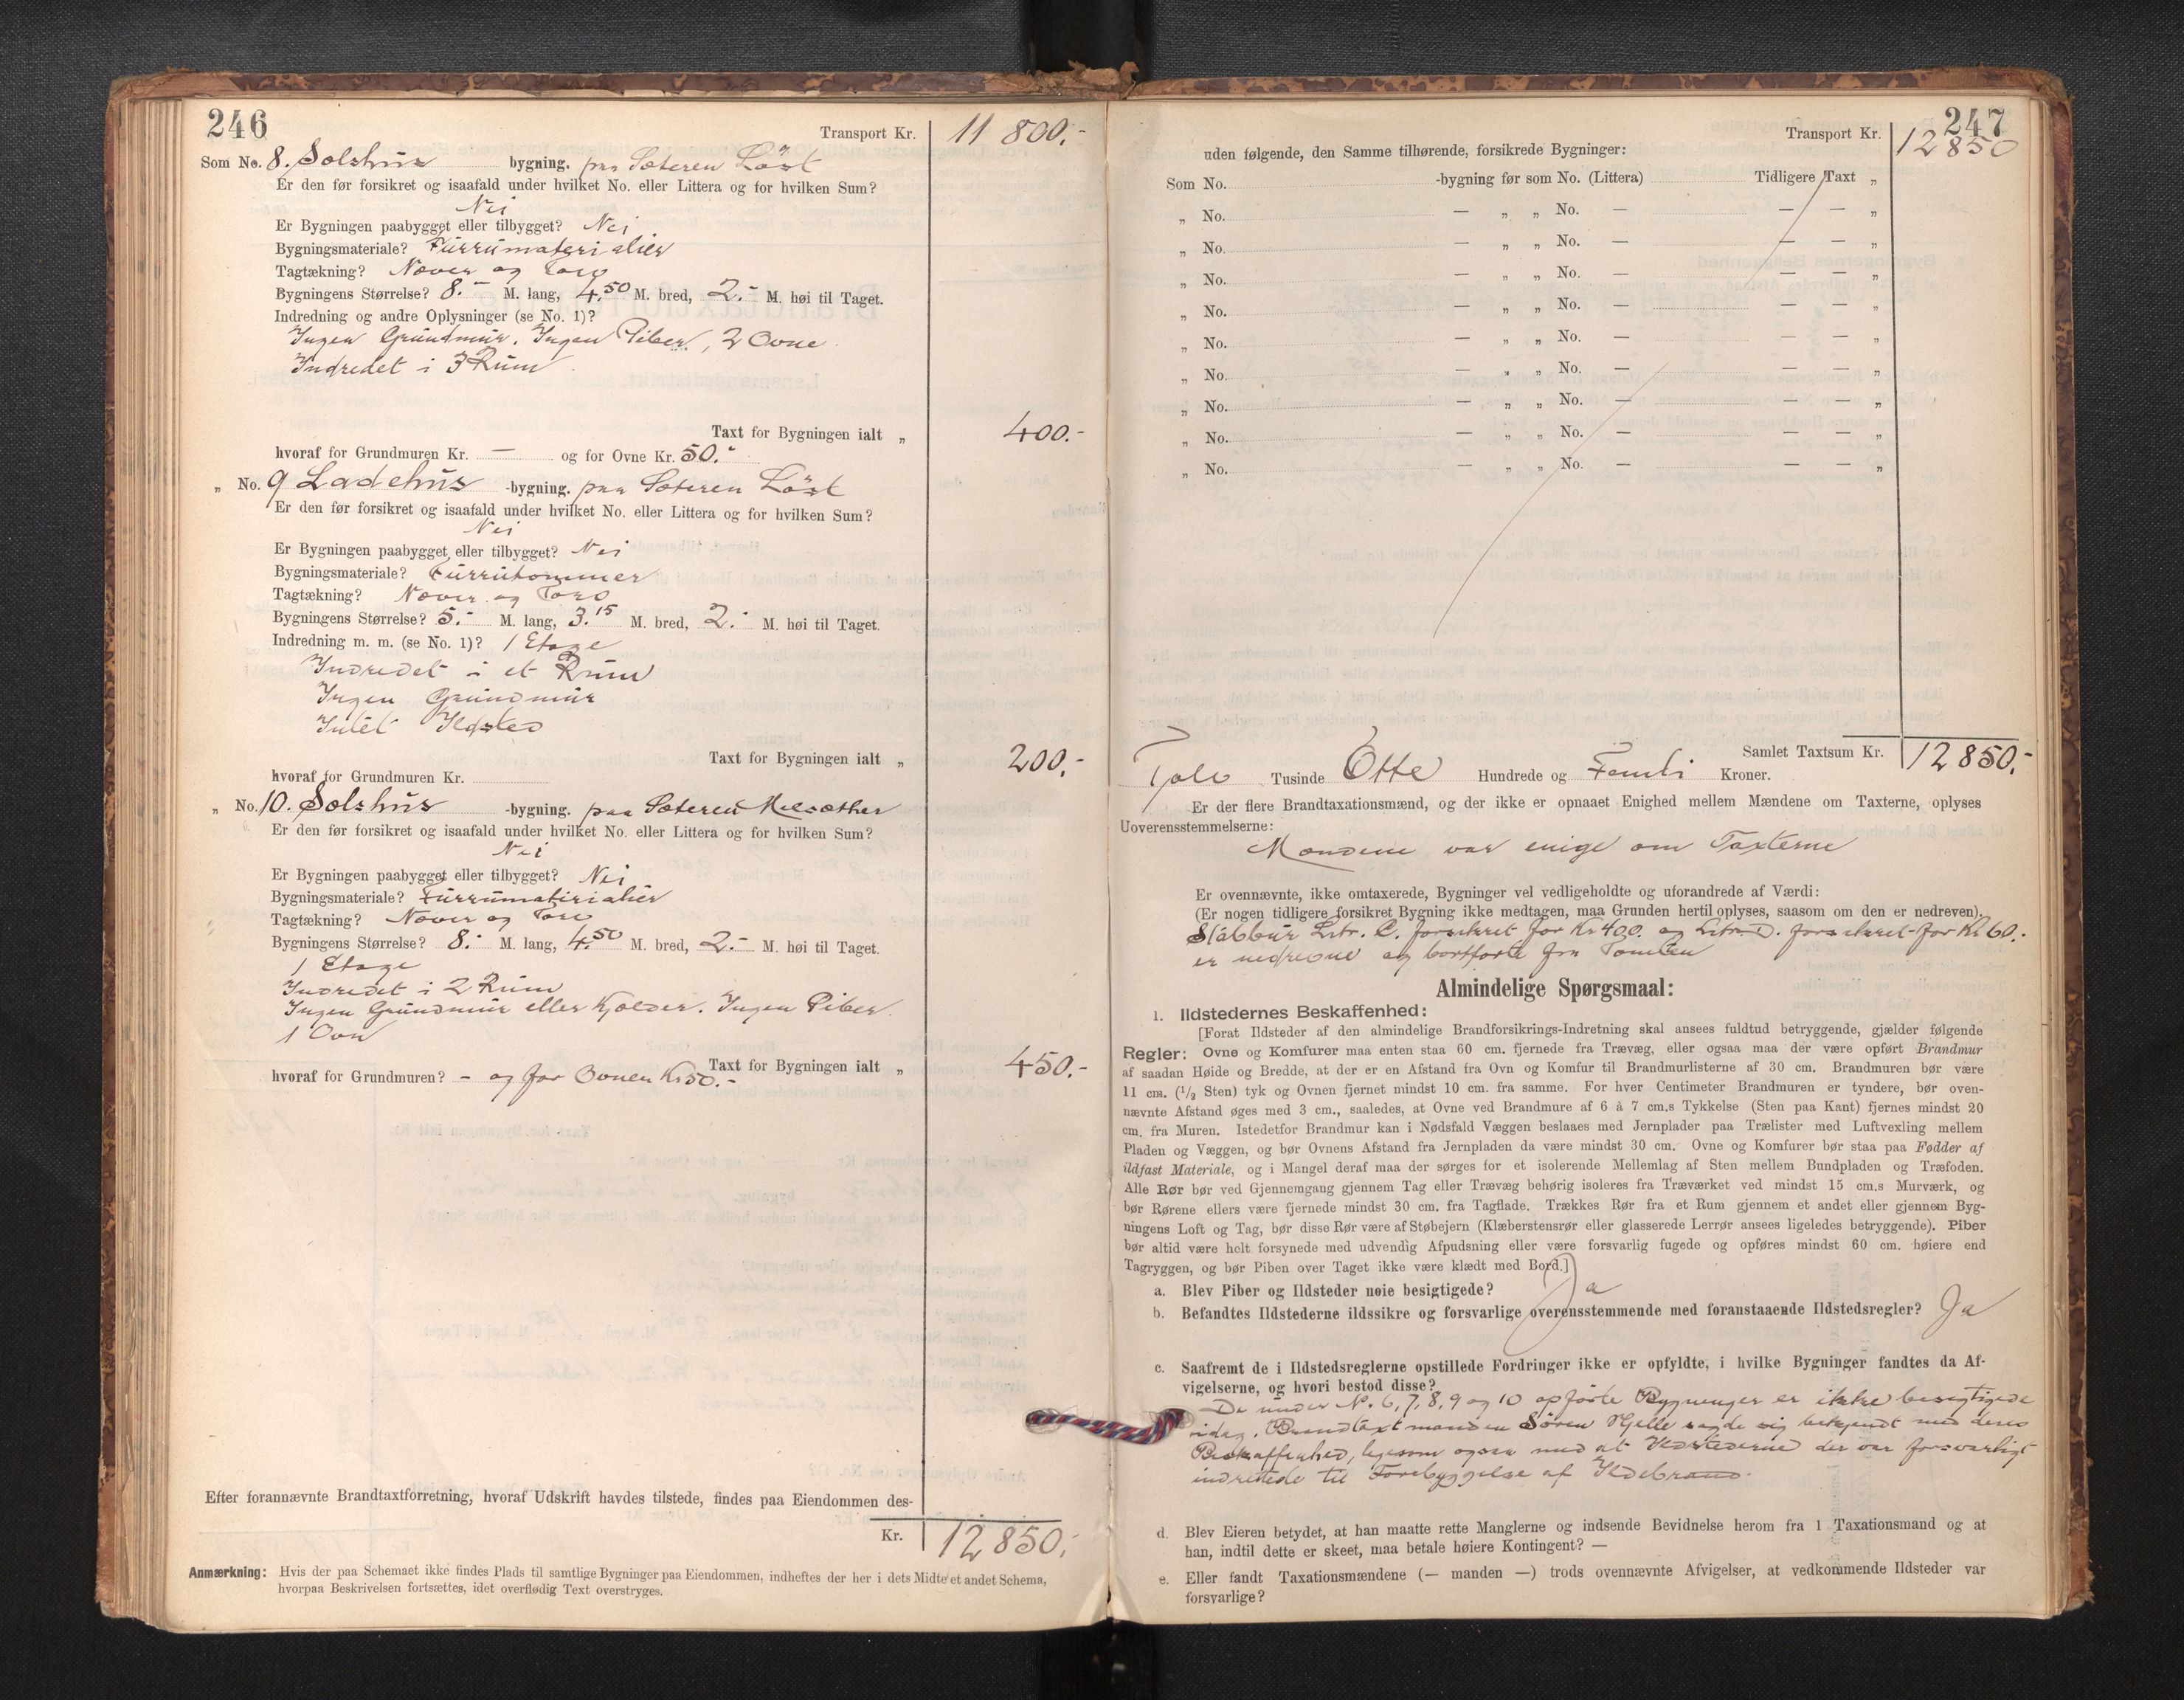 246
Transport Kr. 11 800.-
Som No. 8. Selshus bygning. paa Sæteren Löst
Er den før forsikret og isaafald under hvilket No. eller Littera og for hvilken Sum?
Nei
Er Bygningen paabygget eller tilbygget? Nei
Bygningsmateriale? Furrumaterialier
Tagtækning? Næver og Torv
Bygningens Størrelse? 8.- M. lang, 4.50 M. bred, 2.- M. høi til Taget.
Indredning og andre Oplysninger (se No. 1)?
Ingen Grundmur. Ingen Piber, 2 Ovne
Indredet i 3 Rum
Taxt for Bygningen ialt „ 400.-
hvoraf for Grundmuren Kr. — og for Ovne Kr. 50.-
„ No. 9 Ladehus -bygning. paa Sæteren Löst
Er den før forsikret og isaafald under hvilket No. eller Littera og for hvilken Sum?
Nei
Er Bygningen paabygget eller tilbygget? Nei
Bygningsmateriale? Furrutømmer
Tagtækning? Næver og Torv
Bygningens Størrelse? 5.- M. lang, 3.15 M. bred, 2.- M. høi til Taget.
Indredning m. m. (se No. 1)? 1 Etage
Indredet i et Rum
Ingen Grundmur
Intet Ildsted
Taxt for Bygningen ialt „ 200.-
hvoraf for Grundmuren Kr.
„ No. 10. Selshus -bygning. paa Sæteren
Er den før forsikret og isaafald under hvilket No. eller Littera og for hvilken Sum?
Nei
Er Bygningen paabygget eller tilbygget? Nei
Bygningsmateriale? Furrumaterialier
Tagtækning? Næver og Torv
Bygningens Størrelse? 8.- M. lang, 4.50 M. bred, 2.- M. høi til Taget.
1 Etage
Indredet i 2 Rum
Ingen Grundmur eller Kjælder. Ingen Piber.
1 Ovn
Taxt for Bygningen ialt „ 450.-
hvoraf for Grundmuren? - og for Ovnen Kr 50.-
Efter forannævnte Brandtaxtforretning, hvoraf Udskrift havdes tilstede, findes paa Eiendommen des-
Kr. 12 850.-
Anmærkning: Hvis der paa Schemaet ikke findes Plads til samtlige Bygninger paa Eiendommen, indheftes der her i dets Midte et andet Schema,
hvorpaa Beskrivelsen fortsættes, idet overflødig Text overstryges.
247
Transport Kr. 12 850
uden følgende, den Samme tilhørende, forsikrede Bygninger:
Som No. -bygning før som No. (Littera) Tidligere Taxt „
„ No. — „ „ No. — — — „
„ No. — „ „ No. — — — „
„ No. — „ „ No. — — — „
„ No. — „ „ No. — — — „
„ No. — „ „ No. — — — „
„ No. — „ „ No. — — — „
„ No. — „ „ No. — — — „
„ No. — „ „ No. — — — „
„ No. — „ „ No. — — — „
Samlet Taxtsum Kr. 12 850.-
Tolv Tusinde Otte Hundrede og Femti Kroner.
Er der flere Brandtaxationsmænd, og der ikke er opnaaet Enighed mellem Mændene om Taxterne, oplyses
Uoverensstemmelserne:
Mændene var enige om Taxterne
Er ovennævnte, ikke omtaxerede, Bygninger vel vedligeholdte og uforandrede af Værdi:
(Er nogen tidligere forsikret Bygning ikke medtagen, maa Grunden hertil oplyses, saasom om den er nedreven).
Stabbur Litr. C. forsikret for Kr 400. og Litr. D. forsikret for Kr 60.
er nedrevne og bortførte fra Tomten
Almindelige Spørgsmaal:
1. Ildstedernes Beskaffenhed:
[Forat Ildsteder af den almindelige Brandforsikrings-Indretning skal ansees fuldtud betryggende, gjælder følgende
Regler: Ovne og Komfurer maa enten staa 60 cm. fjernede fra Trævæg, eller ogsaa maa der være opført Brandmur
af saadan Høide og Bredde, at der er en Afstand fra Ovn og Komfur til Brandmurlisterne af 30 cm. Brandmuren bør være
11 cm. (1/2 Sten) tyk og Ovnen fjernet mindst 10 cm. fra samme. For hver Centimeter Brandmuren er tyndere, bør oven-
nævnte Afstand øges med 3 cm., saaledes, at Ovne ved Brandmure af 6 à 7 cm.s Tykkelse (Sten paa Kant) fjernes mindst 20
cm. fra Muren. Istedetfor Brandmur kan i Nødsfald Væggen beslaaes med Jernplader paa Trælister med Luftvexling mellem
Pladen og Væggen, og bør Ovnens Afstand fra Jernpladen da være mindst 30 cm. Ovne og Komfurer bør staa paa Fødder af
ildfast Materiale, og i Mangel deraf maa der sørges for et isolerende Mellemlag af Sten mellem Bundpladen og Træfoden.
Alle Rør bør ved Gjennemgang gjennem Tag eller Trævæg behørig isoleres fra Træværket ved mindst 15 cm.s Murværk, og
bør Rørene ellers være fjernede mindst 30 cm. fra Tagflade. Trækkes Rør fra et Rum gjennem et andet eller gjennem Byg-
ningens Loft og Tag, bør disse Rør være af Støbejern (Klæberstensrør eller glasserede Lerrør ansees ligeledes betryggende). Piber
bør altid være helt forsynede med udvendig Afpudsning eller være forsvarlig fugede og opføres mindst 60 cm. høiere end
Tagryggen, og bør Piben over Taget ikke være klædt med Bord.]
a. Blev Piber og Ildsteder nøie besigtigede? Ja
b. Befandtes Ildstederne ildssikre og forsvarlige overensstemmende med foranstaaende Ildstedsregler? Ja
c. Saafremt de i Ildstedsreglerne opstillede Fordringer ikke er opfyldte, i hvilke Bygninger fandtes da Af-
vigelserne, og hvori bestod disse?
De under No. 6, 7, 8, 9 og 10 opførte Bygninger er ikke besigtigede
idag. Brandtaxtmanden Sören Hjelle sagde sig bekjendt med deres
Beskaffenhed, ligesom ogsaa med at Ildstederne der var forsvarligt
indrettede til Forebyggelse af Ildebrand.
d. Blev Eieren betydet, at han maatte rette Manglerne og indsende Bevidnelse herom fra 1 Taxationsmand og at
han, indtil dette er skeet, maa betale høiere Kontingent? —
e. Eller fandt Taxationsmændene (— manden —) trods ovennævnte Afvigelser, at vedkommende Ildsteder var
forsvarlige?